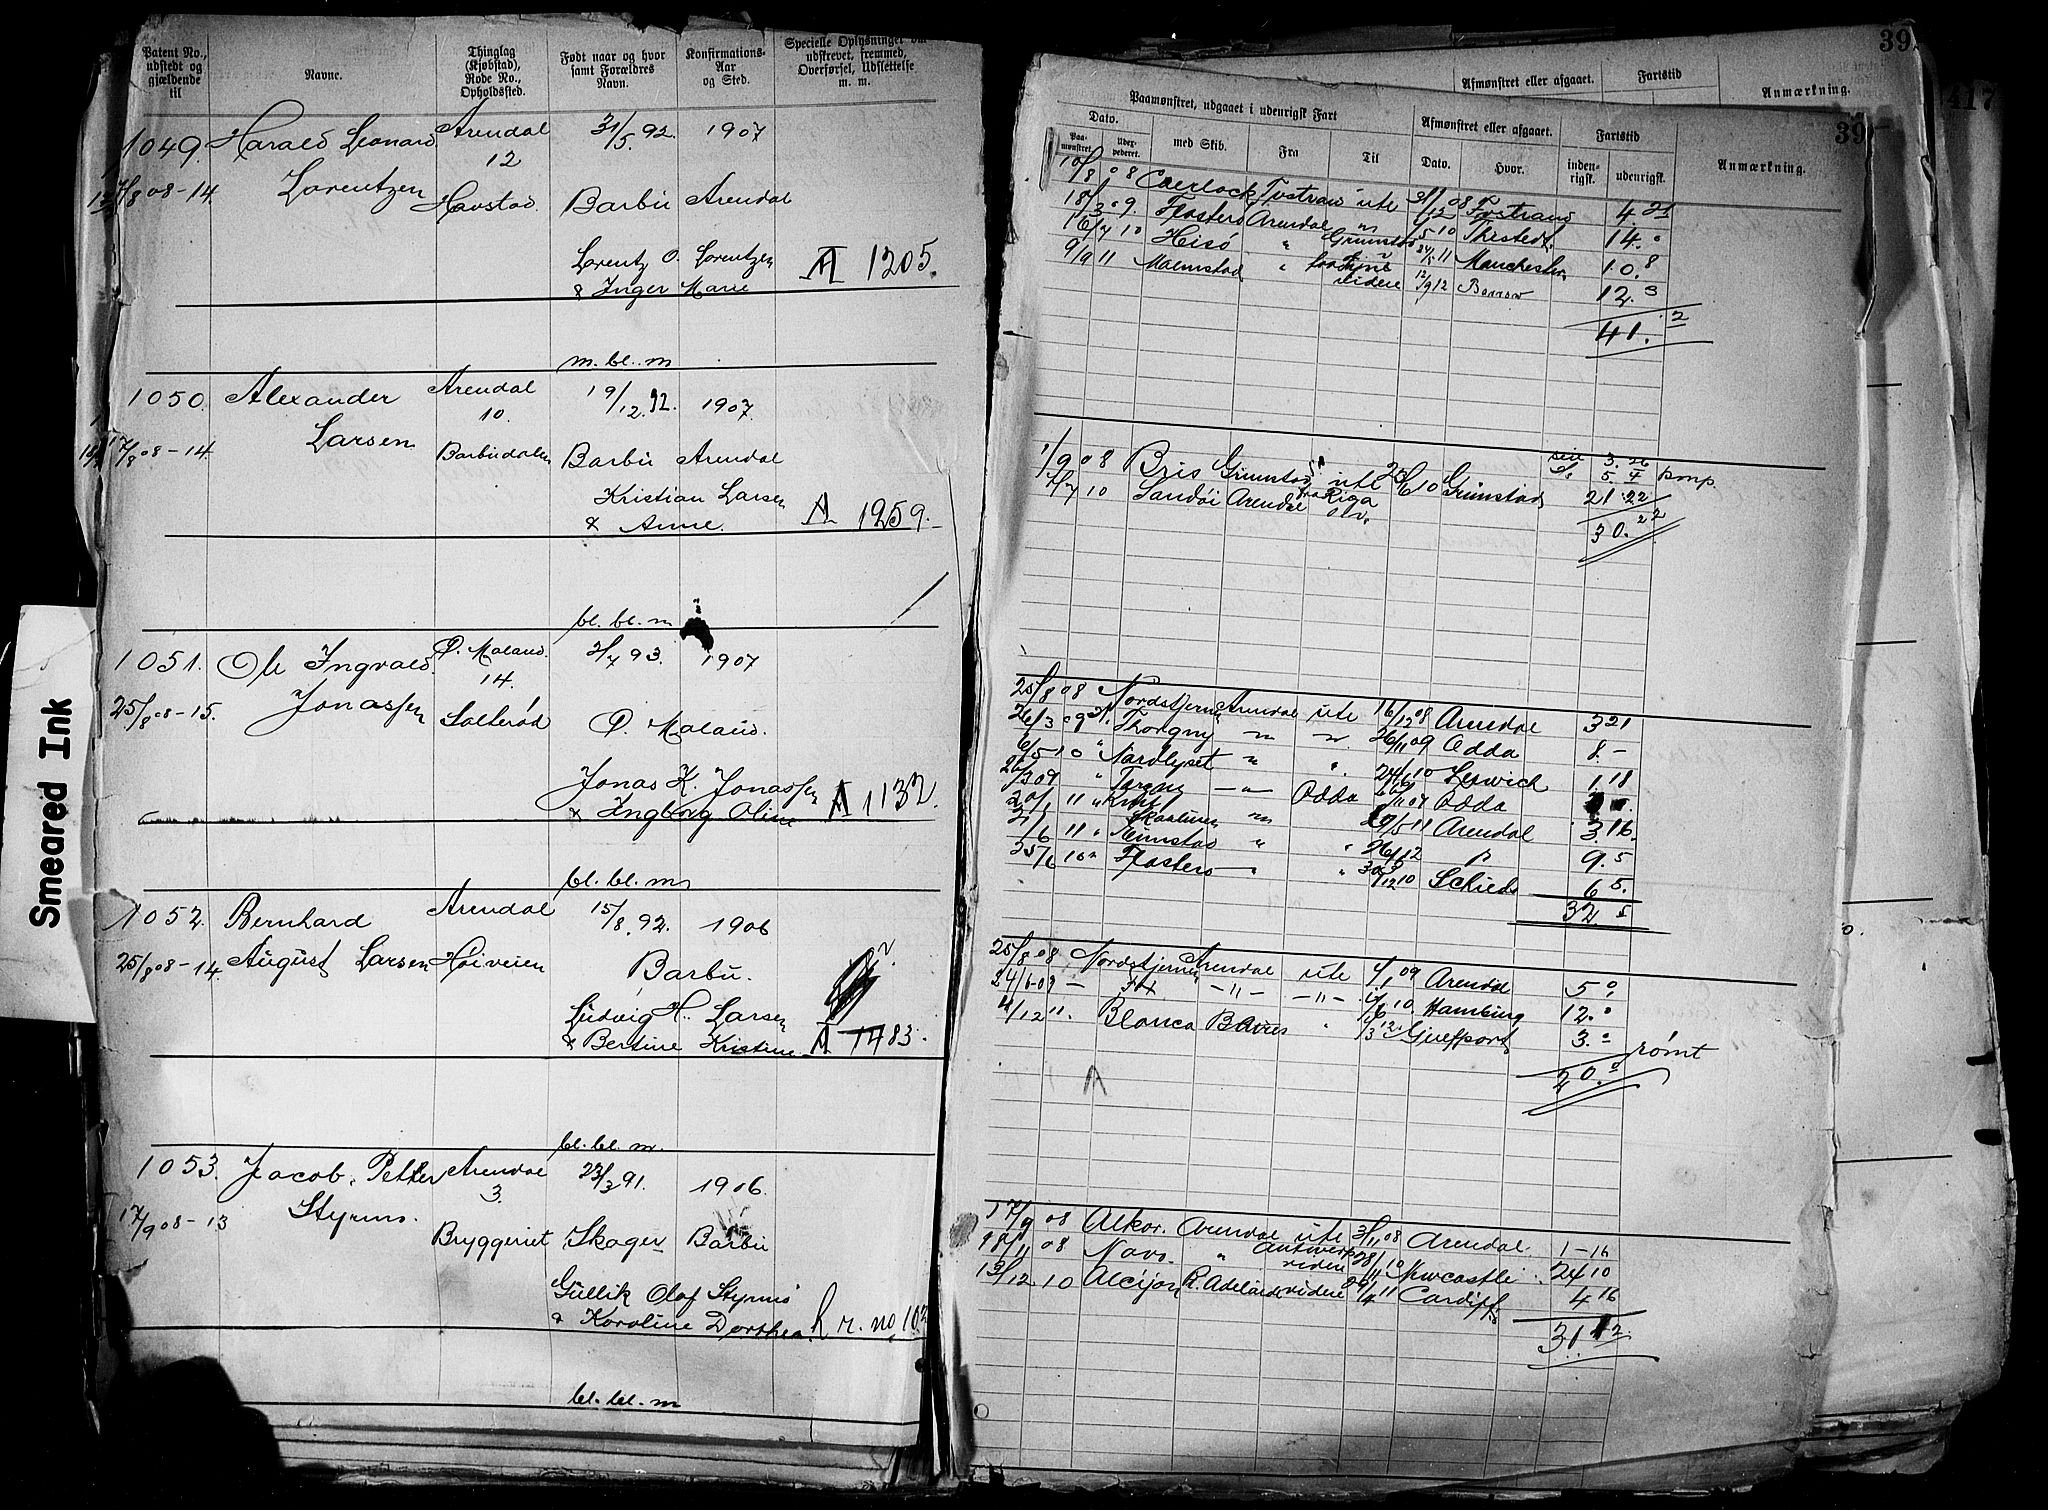 Patent No., udstedt og gjældende til
Navne.
Thinglag (Kjøbstad), Rode No., Opholdssted.
Født naar og hvor samt Forældres Navn.
Konfirmations-Aar og Sted.
Specielle Oplysninger om udskrevet, fremmed, Overførsel, Udslettelse m. m.
1049. Harald Leonard Arendal 31/5 92. 1907
Lorentzen 12
17/8 08-14. Havstad. Barbu Arendal
Lorentz O. Lorentzen A 1205.
& Inger Marie
m. bl. m
1050. Alexander Arendal 19/12.92. 1907.
Larsen 10.
17/8 08-14. Barbudalen Barbu Arendal
Kristian Larsen
& Anne. A 1259.
bl. bl. m
1051. Ole Ingvald Ø. Moland. 2/7 93. 1907
Jonassen 14.
25/8 08-15. Salterød Ø. Moland.
Jonas K. Jonassen A 1132.
& Ingborg Oline
bl. bl. m
1052. Bernhard Arendal 15/8. 92. 1906
25/8 08-14. August Larsen Høiveien Barbu.
Ludvig H. Larsen
& Bertine Kristine A 1483.
bl. bl. m.
1053. Jacob Petter Arendal 23/3 91. 1906.
Styrmo. 3.
17/9 08-13 Bryggeriet Skager Barbu
Gullik Olaf Styrmo
& Karoline Dorthea. h r. no 103
bl. bl. m
Smeared Ink
39
417
Afmønstret eller afgaaet. Fartstid Anmærkning.
39
Paamønstret, udgaaet i udenrigsk Fart
Afmønstret eller afgaaet. Fartstid
Dato.
Paa-mønstret. Udex-pederet. med Skib. Fra Til Dato. Hvor. inden-rigsk. udenrigsk. Anmærkning.
10/8 08 Caerlock ute 08 4. 21
18/3 09. Flosters Arendal " 5 10 Thistedt 14. 0
16/7 10 Hisø " Grimstad 11 Manchester 10. 8
9/9 11 Malmstad " videre 12/9 12 Barrow 12. 3
41. 2
1/9 08 Bris Grimstad ute 10 Grimstad 3. 26 5. 4
7 10 Sandøi Arendal Riga 21. 22
30. 22
25/8 08 Nordstjernen Arendal ute 16/12 08 Arendal 3 21
26/3 09 Thorgny " " 26/11 09 Odda 8. -
6/5 10 " Nordlyset " " 10 Lerwich 1. 18
26/3 09 " Torgny -"- Odda Odda
20/1 11 " 5 11 Arendal 3. 16
6 11 " " " 12 " 9. 5
25/6 10 " Flosters " 30/12 10 Schied 6 5.
32 5
25/8 08 Nordstjernen Arendal ute 1 09 Arendal 5 0
24/6 09 - -"- -"- 6 10 Hamburg 12. 0
12 11. Blanca " 3 12 3. 0 rømt
20. 0
A
17/9 08 Alkor. Arendal ute 3/11 08 Arendal 1-16
18/11 08 Navo. " Antwerp videre 28/11 10 Newcastle 24 10
12 10 Alcijon P. Adelaide videre 4 11 Cardiff. 4 16
31 12.